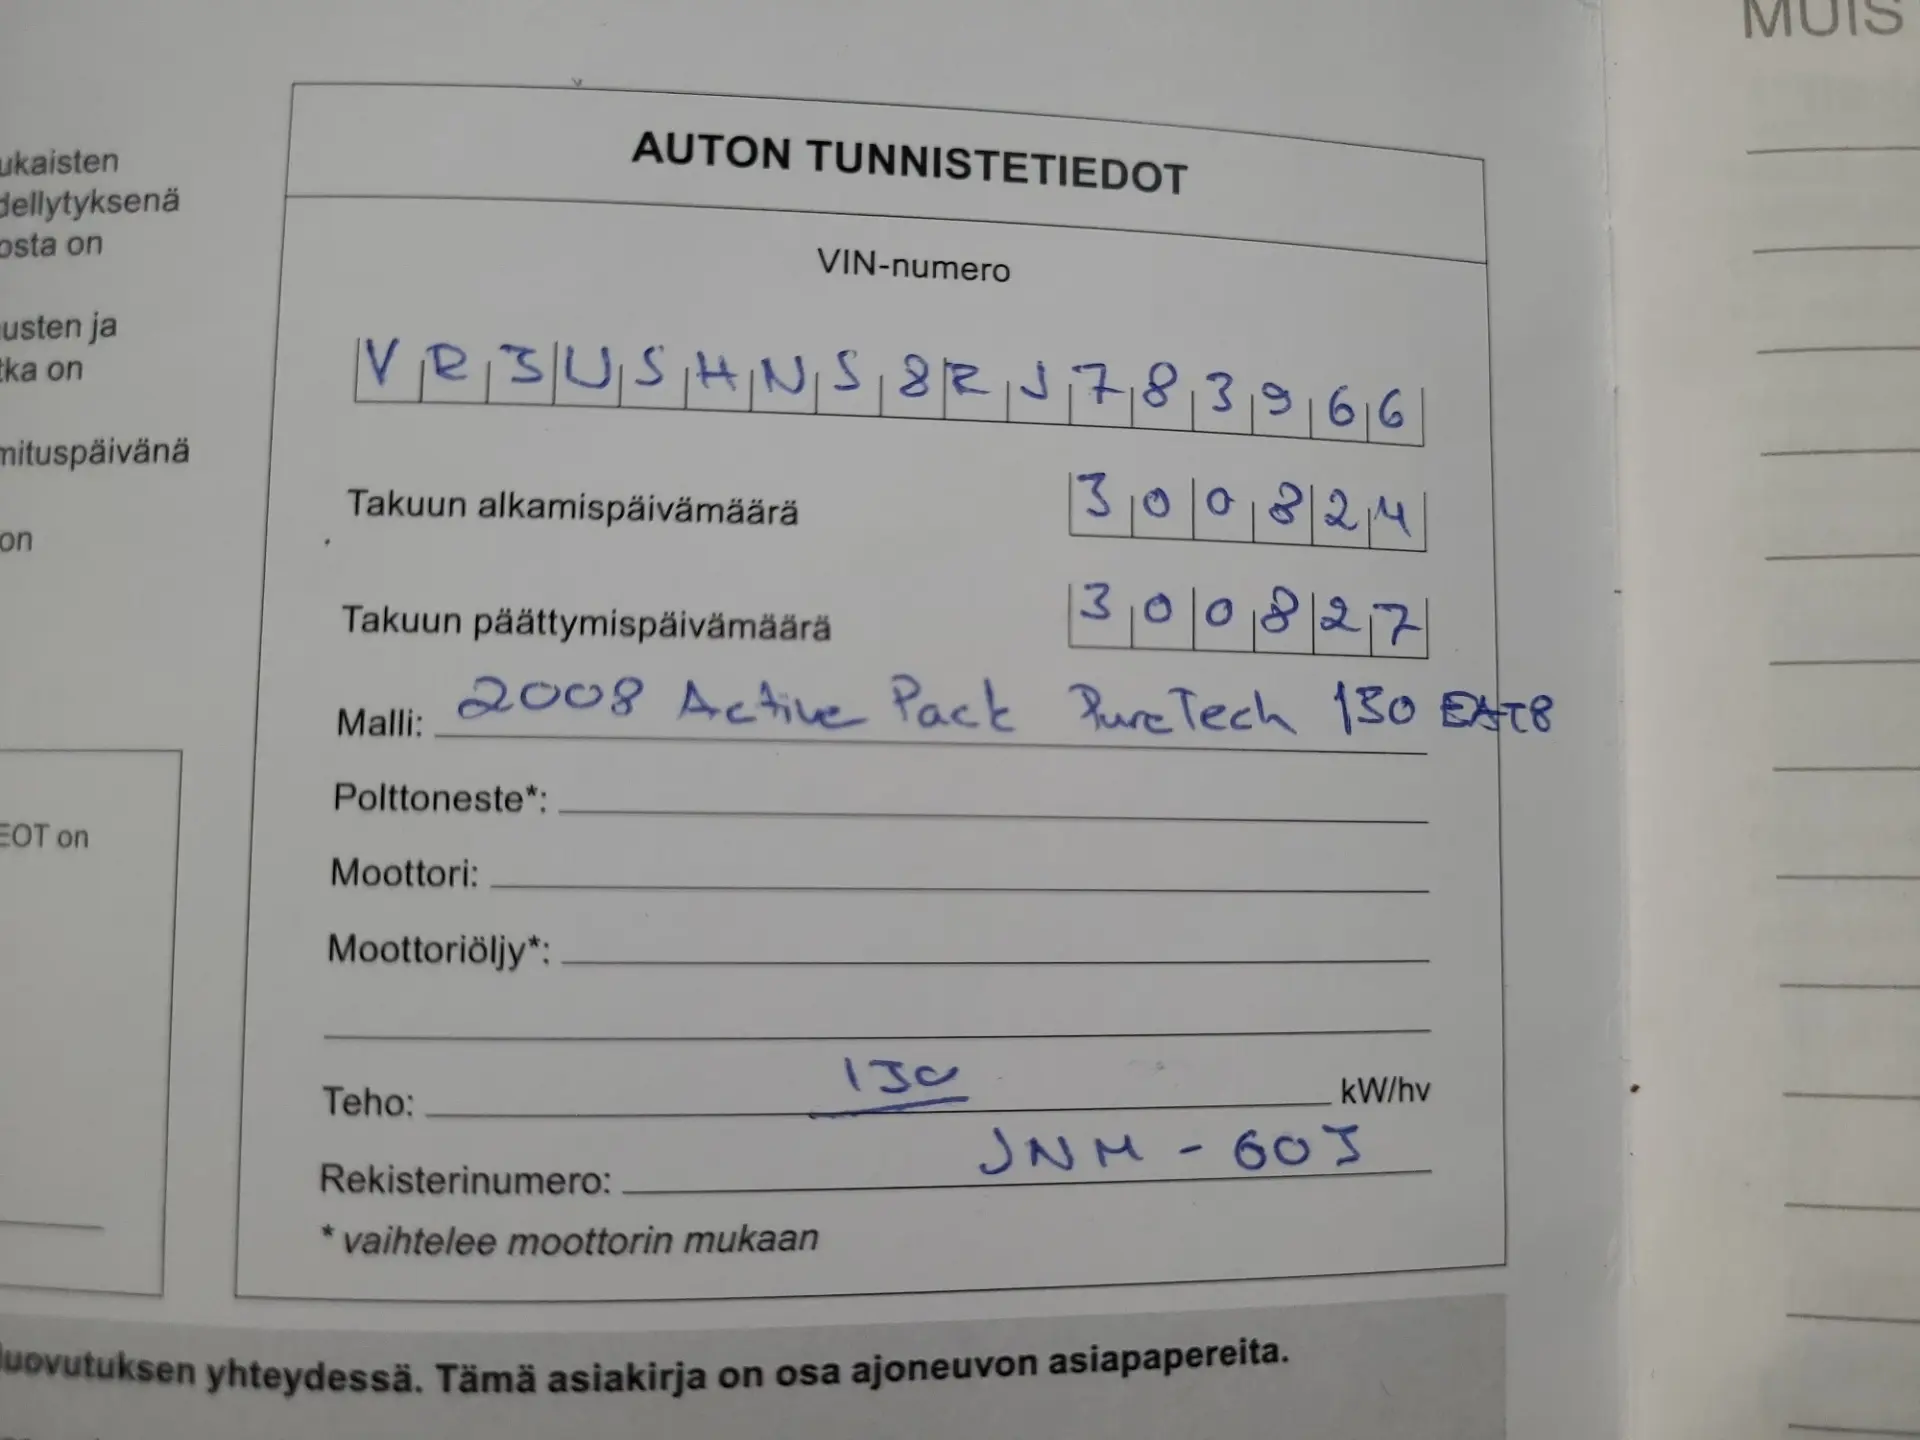 MUIS
ukaisten
dellytyksenä
osta on
usten ja
tka on
mituspäivänä
on
EOT on
AUTON TUNNISTETIEDOT
VIN-numero
VR3USHNS8RJ783966
Takuun alkamispäivämäärä 300824
Takuun päättymispäivämäärä 300827
Malli: 2008 Active Pack PureTech 130 EAT8
Polttoneste*:
Moottori:
Moottoriöljy*:
Teho: 130 kW/hv
Rekisterinumero: JNM-603
* vaihtelee moottorin mukaan
luovutuksen yhteydessä. Tämä asiakirja on osa ajoneuvon asiapapereita.